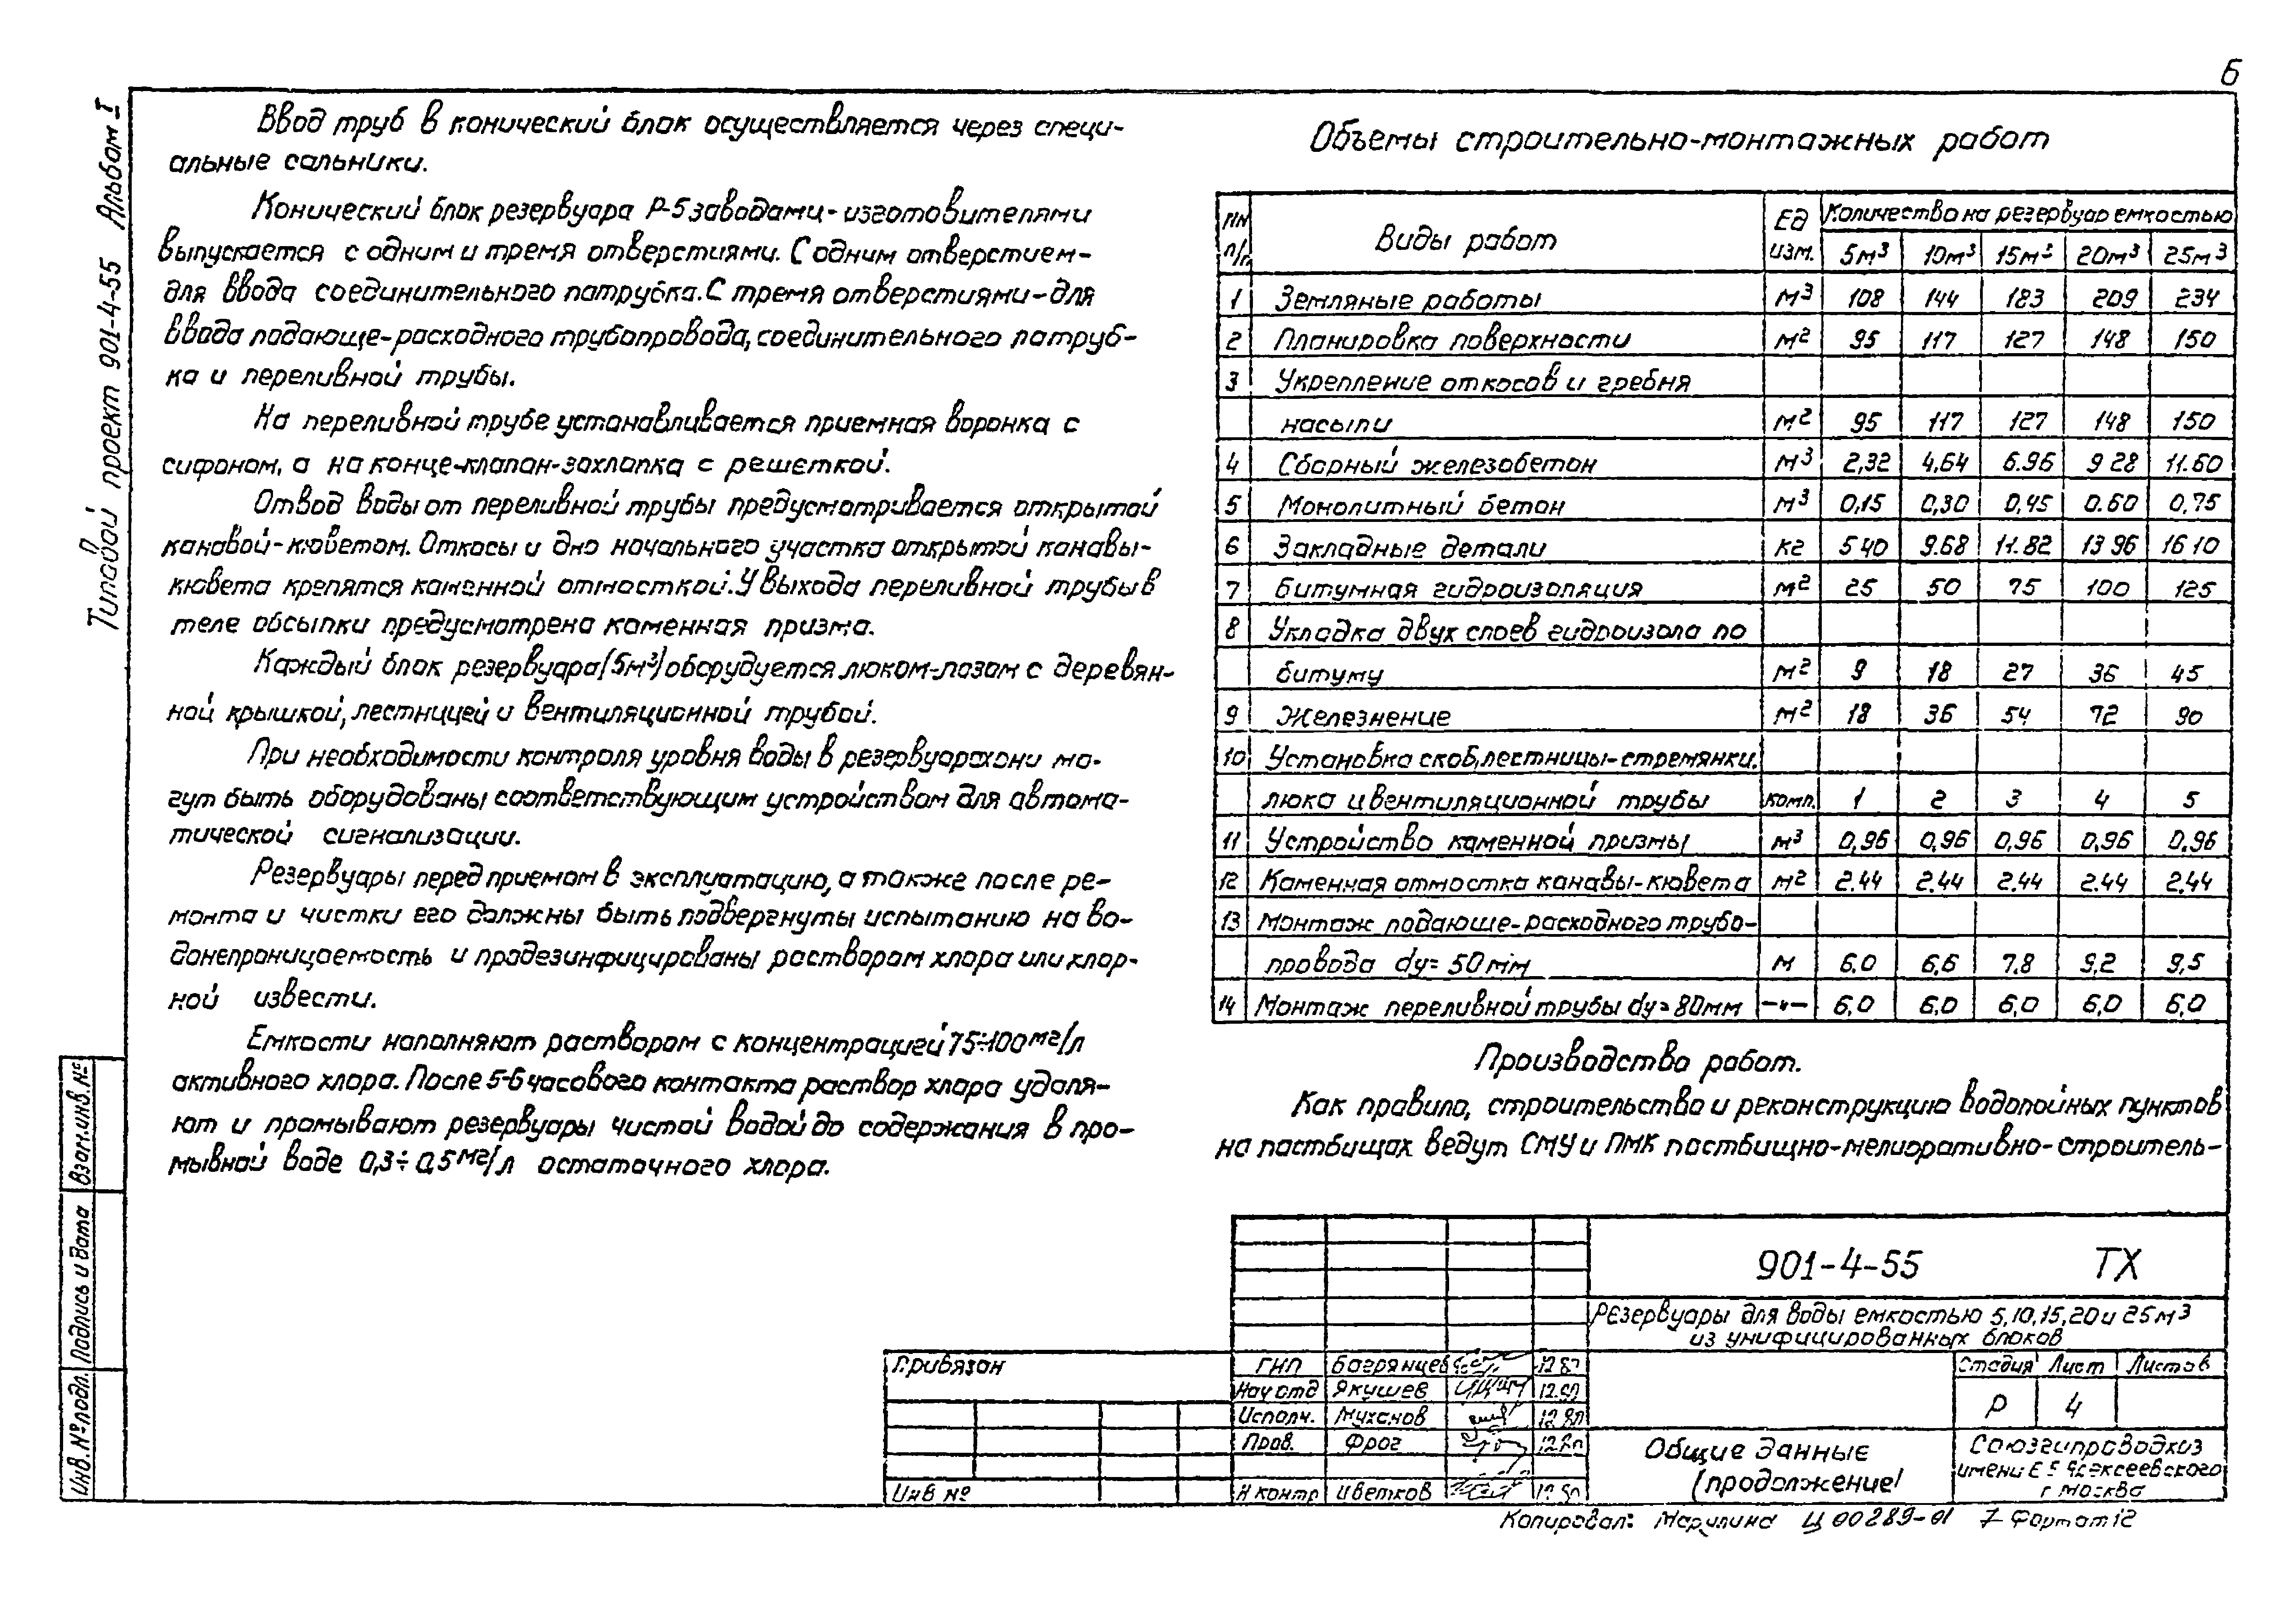 6
Типовой проект 901-4-55 Альбом I
Ввод труб в конический блок осуществляется через специ-
альные сальники.
Конический блок резервуара Р-5 заводами-изготовителями
выпускается с одним и тремя отверстиями. С одним отверстием-
для ввода соединительного патрубка. С тремя отверстиями-для
ввода подающе-расходного трубопровода, соединительного патруб-
ка и переливной трубы.
На переливной трубе устанавливается приемная воронка с
сифоном, а на конце-клапан-захлопка с решеткой.
Отвод воды от переливной трубы предусматривается открытой
канавой-кюветом. Откосы и дно начального участка открытой канавы-
кювета крепятся каменной отмосткой. У выхода переливной трубы в
теле обсыпки предусмотрена каменная призма.
Каждый блок резервуара (5м³) оборудуется люком-лазом с деревян-
ной крышкой, лестницей и вентиляционной трубой.
При необходимости контроля уровня воды в резервуарах они мо-
гут быть оборудованы соответствующим устройством для автома-
тической сигнализации.
Резервуары перед приемом в эксплуатацию, а также после ре-
монта и чистки его должны быть подвергнуты испытанию на во-
донепроницаемость и продезинфицированы раствором хлора или хлор-
ной извести.
Емкости наполняют раствором с концентрацией 75÷100 мг/л
активного хлора. После 5-6 часового контакта раствор хлора удаля-
ют и промывают резервуары чистой водой до содержания в про-
мывной воде 0,3÷0,5 мг/л остаточного хлора.
Объемы строительно-монтажных работ
NN п/п Виды работ Ед изм. Количество на резервуар емкостью
5м³ 10м³ 15м³ 20м³ 25м³
1 Земляные работы м³ 108 144 183 209 234
2 Планировка поверхности м² 95 117 127 148 150
3 Укрепление откосов и гребня
насыпи м² 95 117 127 148 150
4 Сборный железобетон м³ 2,32 4,64 6.96 9 28 11.60
5 Монолитный бетон м³ 0,15 0,30 0,45 0.60 0,75
6 Закладные детали кг 5 40 9.68 11.82 13 96 16 10
7 Битумная гидроизоляция м² 25 50 75 100 125
8 Укладка двух слоев гидроизола по
битуму м² 9 18 27 36 45
9 Железнение м² 18 36 54 72 90
10 Установка скоб, лестницы-стремянки,
люка и вентиляционной трубы комп. 1 2 3 4 5
11 Устройство каменной призмы м³ 0,96 0,96 0,96 0,96 0.96
12 Каменная отмостка канавы-кювета м² 2.44 2.44 2.44 2.44 2.44
13 Монтаж подающе-расходного трубо-
провода dу= 50мм м 6.0 6,6 7.8 9,2 9,5
14 Монтаж переливной трубы dу=80мм —"— 6,0 6,0 6,0 6,0 6,0
Производство работ.
Как правило, строительство и реконструкцию водопойных пунктов
на пастбищах ведут СМУ и ПМК пастбищно-мелиоративно-строитель-
Взам.инв.№
Подпись и дата
Инв.№подл.
901-4-55 ТХ
Резервуары для воды емкостью 5,10,15,20 и 25м³
из унифицированных блоков
Привязан
Инв №
ГИП Багрянцев
Нач отд Якушев
Исполн. Муханов
Пров. Фрог
Н контр Цветков
Стадия Лист Листов
Р 4
Общие данные
(продолжение)
Союзгипроводхоз
имени Е Е Алексеевского
г Москва
Копировал: Марулина Ц 00289-01 7 Формат 12